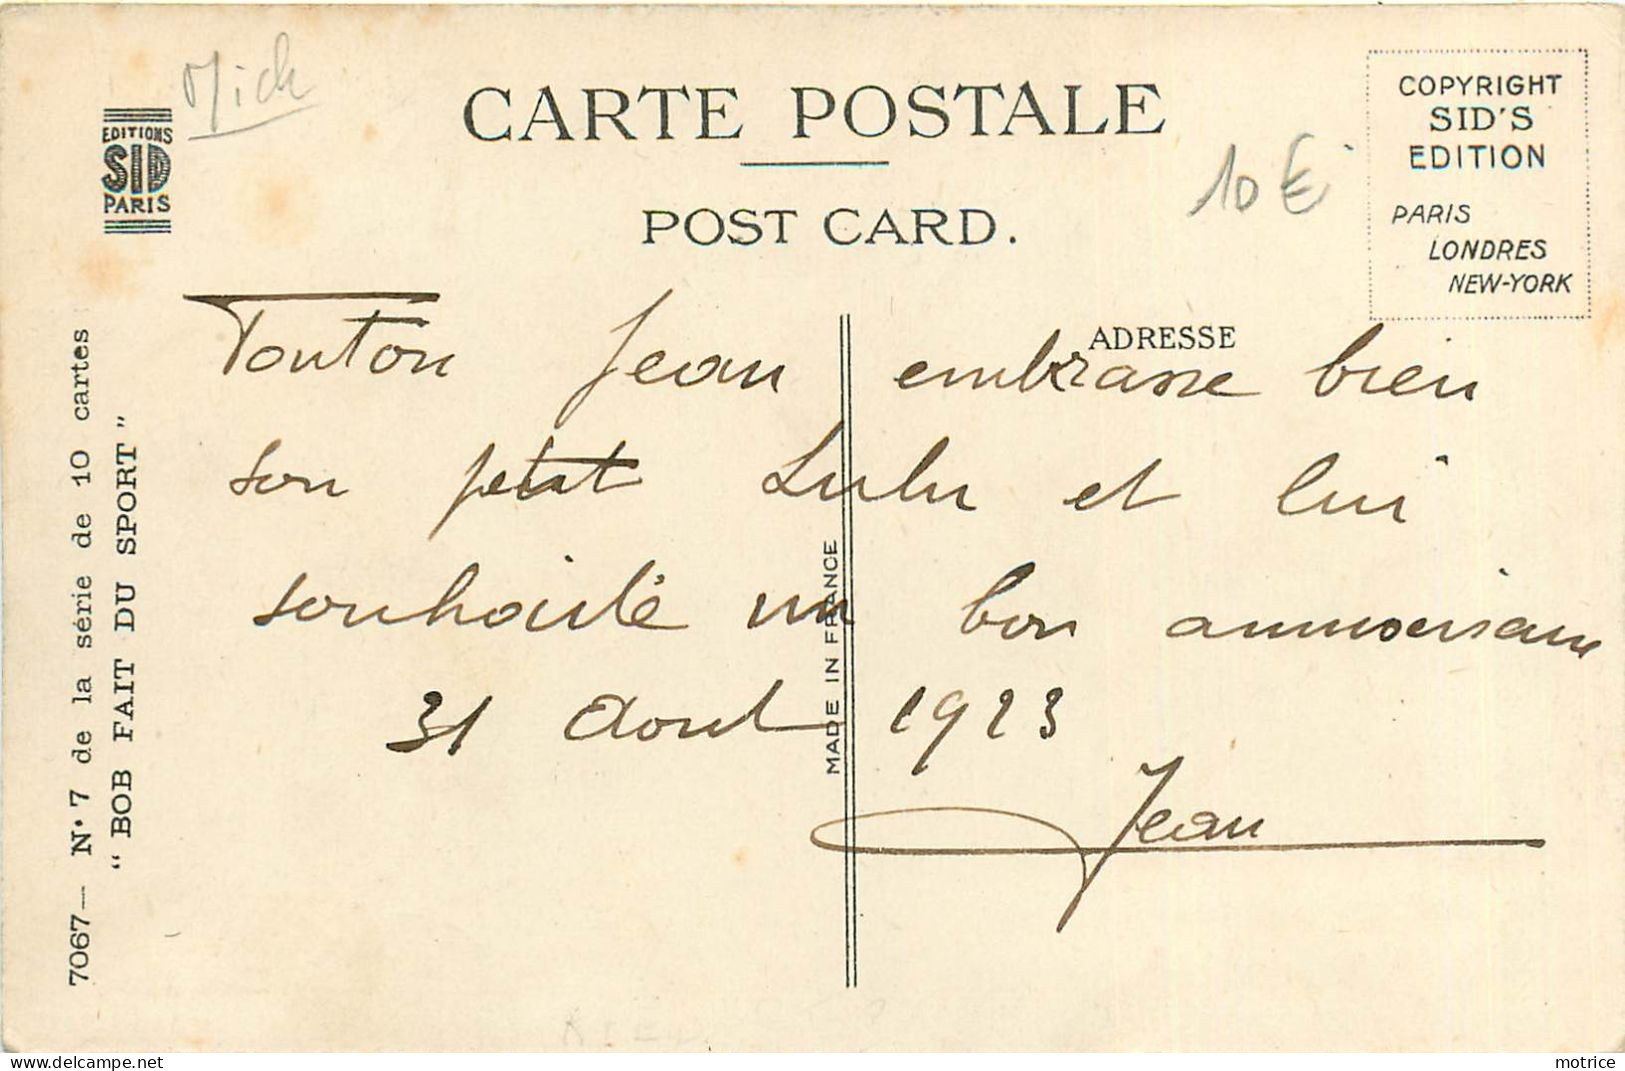 Mich
EDITIONS
SID
PARIS
CARTE POSTALE
POST CARD.
10 €
COPYRIGHT
SID'S
EDITION
PARIS
LONDRES
NEW-YORK
ADRESSE
Tonton Jean embrasse bien
son petit Lulu et lui
souhaite un bon anniversaire
31 Aout 1923
Jean
MADE IN FRANCE
7067 — N° 7 de la série de 10 cartes
“ BOB FAIT DU SPORT ”
motrice